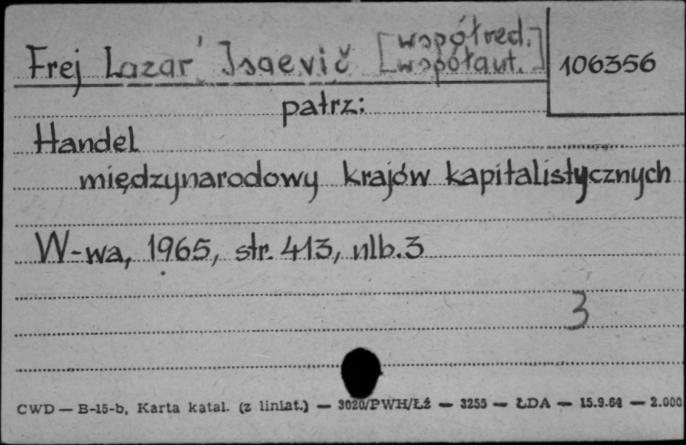 Frej Lazar' Isaevič [współred. współaut.]
106356
patrz:
Handel
międzynarodowy krajów kapitalistycznych
W-wa, 1965, str. 413, nlb. 3
3
CWD — B-15-b, Karta katal. (z liniat.) — 3020/PWH/Łź — 3255 — ŁDA — 15.9.64 — 2.000